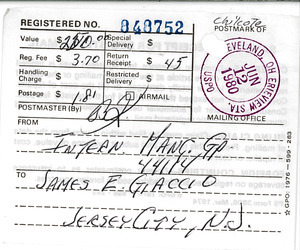 REGISTERED NO. 040752
POSTMARK OF
Value $ 200.00 Special Delivery $
Reg. Fee $ 3.70 Return Receipt $ .45
Handling Charge $ Restricted Delivery $
Postage $ 1.81 AIRMAIL
POSTMASTER (By)
MAILING OFFICE
CLEVELAND, OH ERIEVIEW STA.
JUN
12
1980
USPO
FROM
INTERN MANG. GP
44114
TO
JAMES E. GIACCIO
JERSEY CITY, N.J.
GPO: 1976-599-283